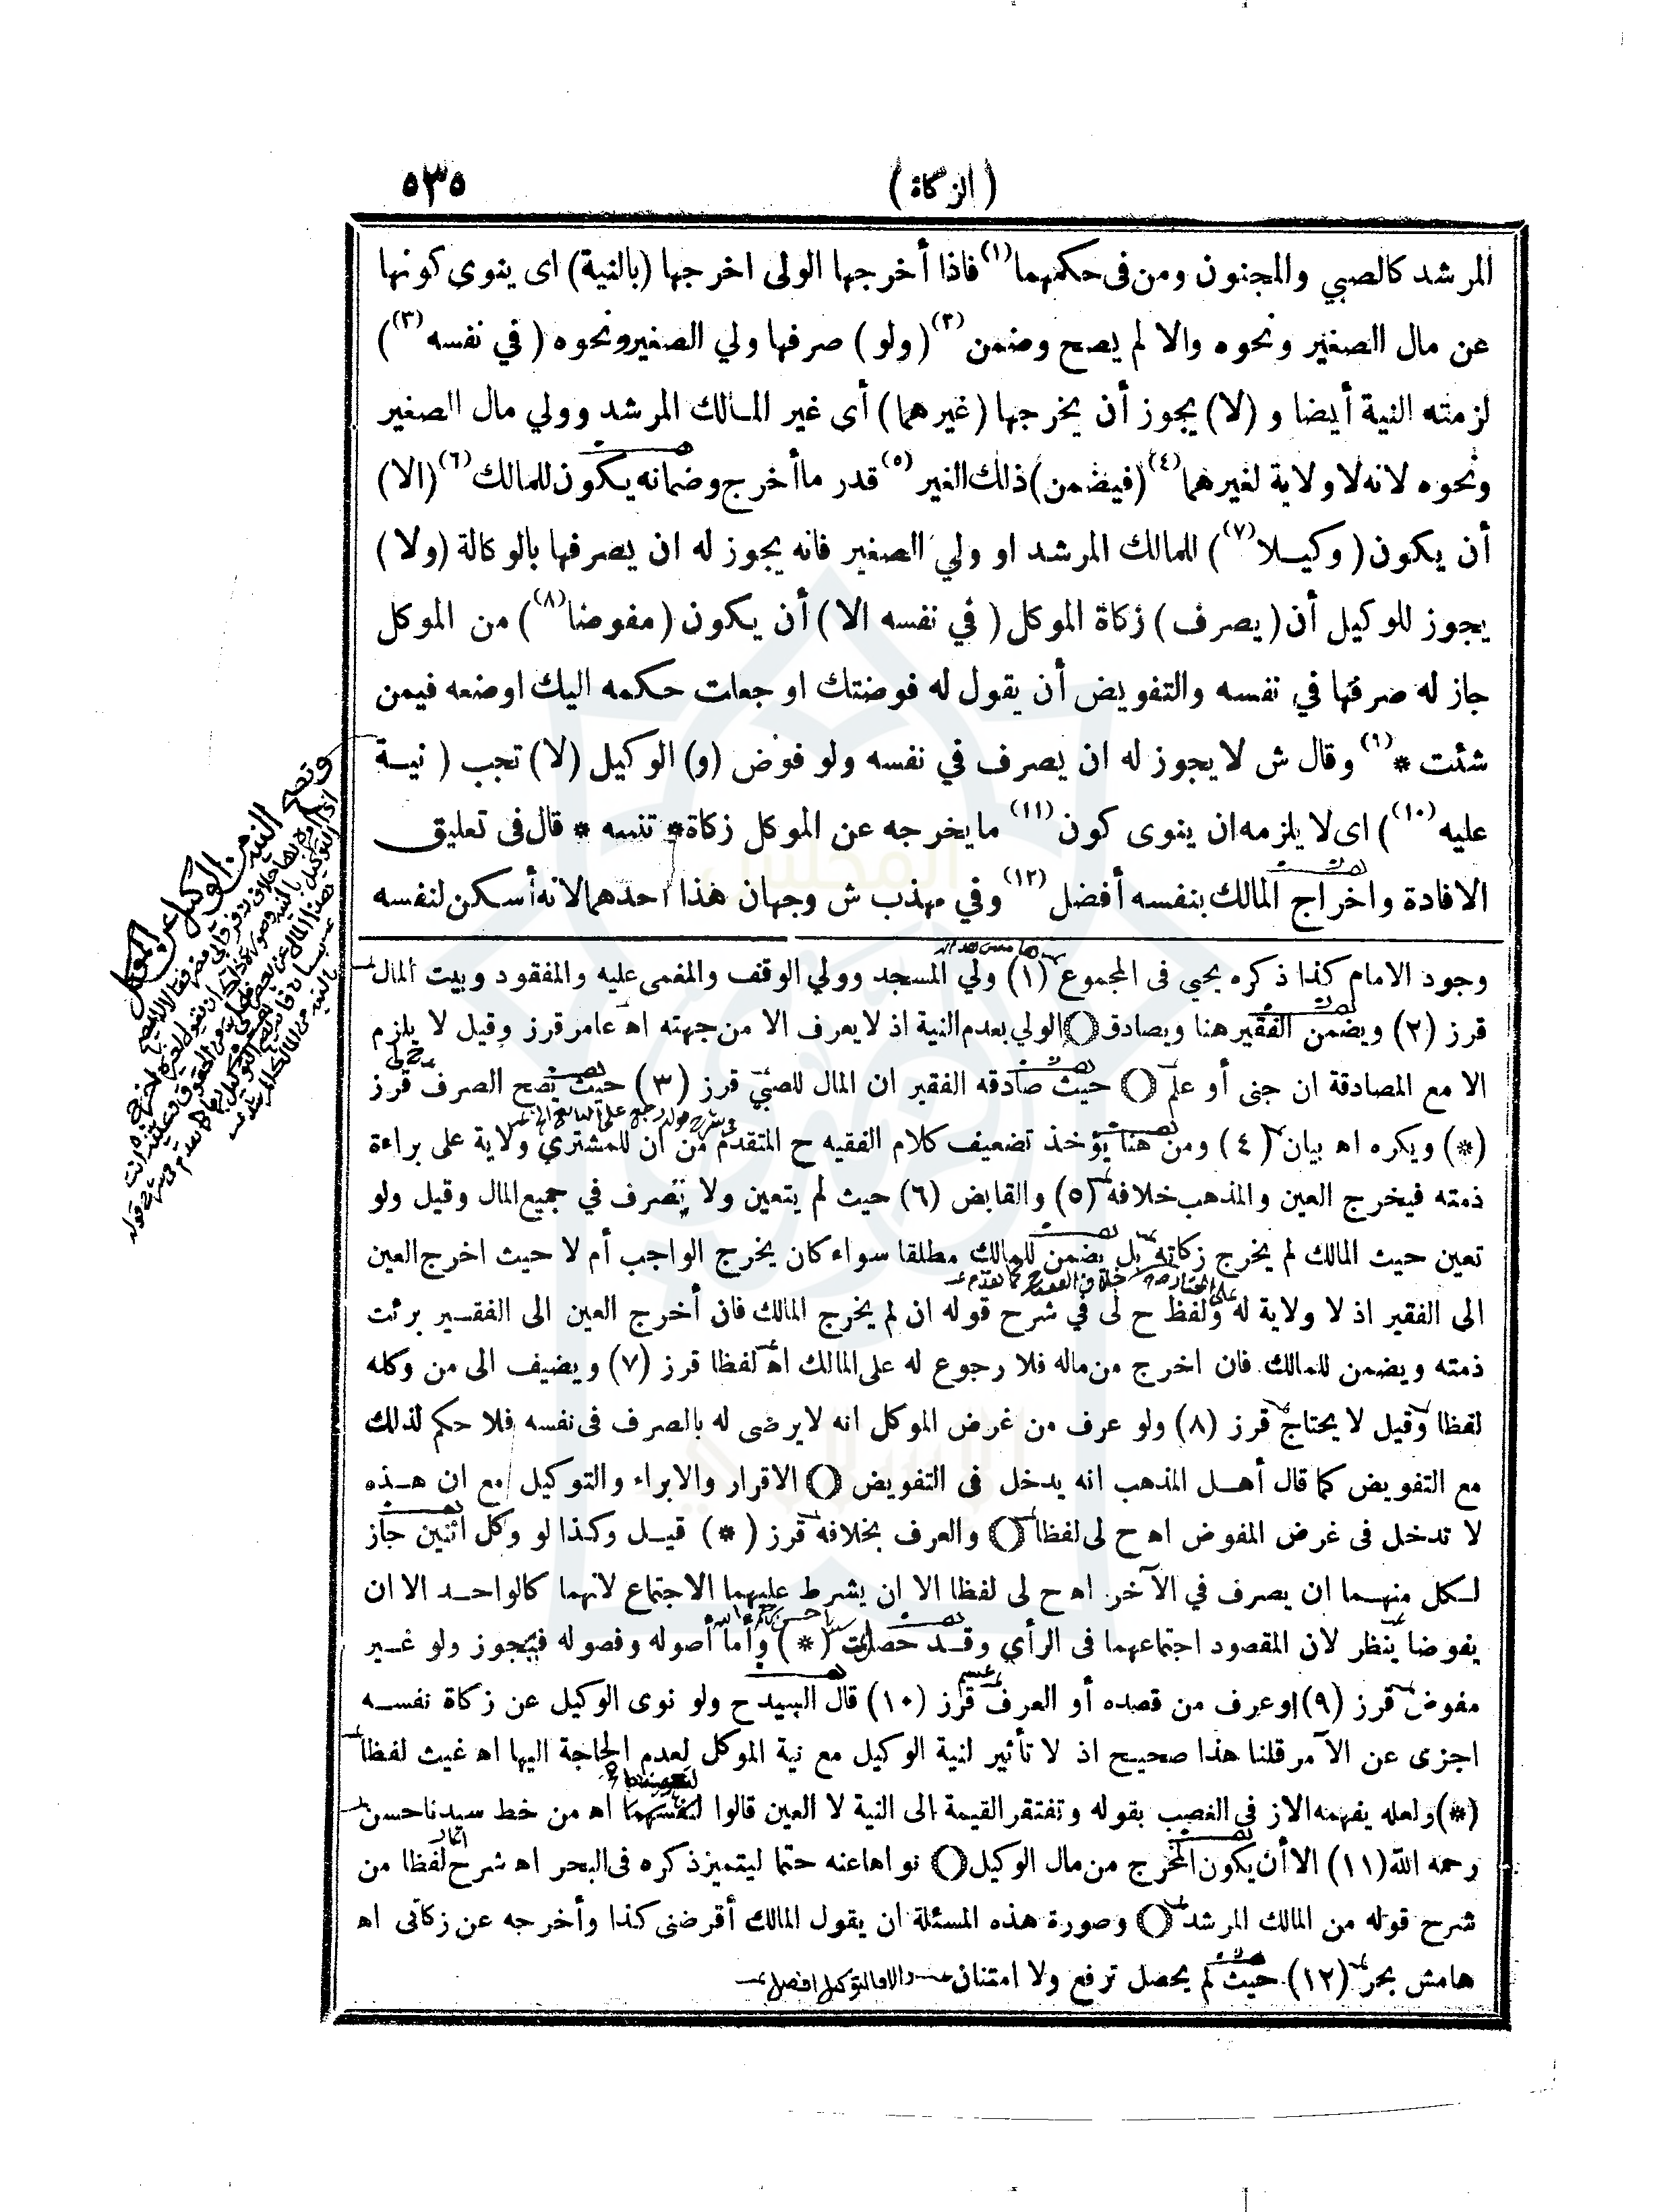 (الزكاة) ٥٣٥
المرشد كالصبي والمجنون ومن فى حكمهما (١) فاذا أخرجها الولى اخرجها (بالنية) اى ينوى كونها
عن مال الصغير ونحوه والا لم يصح وضمن (٢) (ولو) صرفها ولي الصغير ونحوه (في نفسه (٣))
لزمته النية أيضا و (لا) يجوز أن يخرجها (غيرهما) أى غير المالك المرشد وولي مال الصغير
ونحوه لانه لا ولاية لغيرهما (٤) (فيضمن) ذلك الغير (٥) قدر ما أخرج وضمانه يكون للمالك (٦) (الا)
أن يكون (وكيلا (٧)) للمالك المرشد او ولي الصغير فانه يجوز له ان يصرفها بالوكالة (ولا)
يجوز للوكيل أن (يصرف) زكاة الموكل (في نفسه الا) أن يكون (مفوضا (٨)) من الموكل
جاز له صرفها في نفسه والتفويض أن يقول له فوضتك او جعلت حكمه اليك او ضعه فيمن
شئت * (٩) وقال ش لا يجوز له ان يصرف في نفسه ولو فوض (و) الوكيل (لا) تجب (نية
عليه (١٠)) اى لا يلزمه ان ينوى كون (١١) ما يخرجه عن الموكل زكاة * تنبيه * قال فى تعليق
الافادة واخراج المالك بنفسه أفضل (١٢) وفي مهذب ش وجهان هذا احدهما لانه أسكن لنفسه
وجود الامام كذا ذكره يحيي فى المجموع (١) ولي المسجد وولي الوقف والمغمى عليه والمفقود وبيت المال
قرز (٢) ويضمن الفقير هنا ويصادق () الولي بعدم النية اذ لا يعرف الا من جهته اه عامر قرز وقيل لا يلزم
الا مع المصادقة ان جنى أو علم () حيث صادقه الفقير ان المال للصبي قرز (٣) حيث يصح الصرف قرز
(*) ويكره اه بيان (٤) ومن هنا يؤخذ تضعيف كلام الفقيه ح المتقدم من ان للمشتري ولاية على براءة
ذمته فيخرج العين والمذهب خلافه (٥) والقابض (٦) حيث لم يتعين ولا تصرف في جميع المال وقيل ولو
تعين حيث المالك لم يخرج زكاته بل يضمن للمالك مطلقا سواء كان يخرج الواجب أم لا حيث اخرج العين
الى الفقير اذ لا ولاية له ولفظ ح لى في شرح قوله ان لم يخرج المالك فان أخرج العين الى الفقير برئت
ذمته ويضمن للمالك فان اخرج من ماله فلا رجوع له على المالك اه لفظا قرز (٧) ويضيف الى من وكله
لفظا وقيل لا يحتاج قرز (٨) ولو عرف من غرض الموكل انه لا يرضى له بالصرف فى نفسه فلا حكم لذلك
مع التفويض كما قال أهل المذهب انه يدخل فى التفويض () الاقرار والابراء والتوكيل مع ان هذه
لا تدخل فى غرض المفوض اه ح لى لفظا () والعرف بخلافه قرز (*) قيل وكذا لو وكل اثنين جاز
لكل منهما ان يصرف في الآخر اه ح لى لفظا الا ان يشرط عليهما الاجتماع لانهما كالواحد الا ان
يفوضا ينظر لان المقصود اجتماعهما فى الرأي وقد حصلت (*) وأما أصوله وفصوله فيجوز ولو غير
مفوض قرز (٩) او عرف من قصده أو العرف قرز (١٠) قال السيد ح ولو نوى الوكيل عن زكاة نفسه
اجزى عن الآمر قلنا هذا صحيح اذ لا تأثير لنية الوكيل مع نية الموكل لعدم الحاجة اليها اه غيث لفظا
(*) ولعله يفهمه الاز في الغصب بقوله وتفتقر القيمة الى النية لا العين قالوا اه من خط سيدنا حسن
رحمه الله (١١) الا أن يكون المخرج من مال الوكيل () نواها عنه حتما ليتميز ذكره فى البحر اه شرح لفظا من
شرح قوله من المالك المرشد () وصورة هذه المسئلة ان يقول المالك أقرضنى كذا وأخرجه عن زكاتى اه
هامش بحر (١٢) حيث لم يحصل ترفع ولا امتنان والا فالتوكيل افضل
وتصح النية من الوكيل عن الموكل